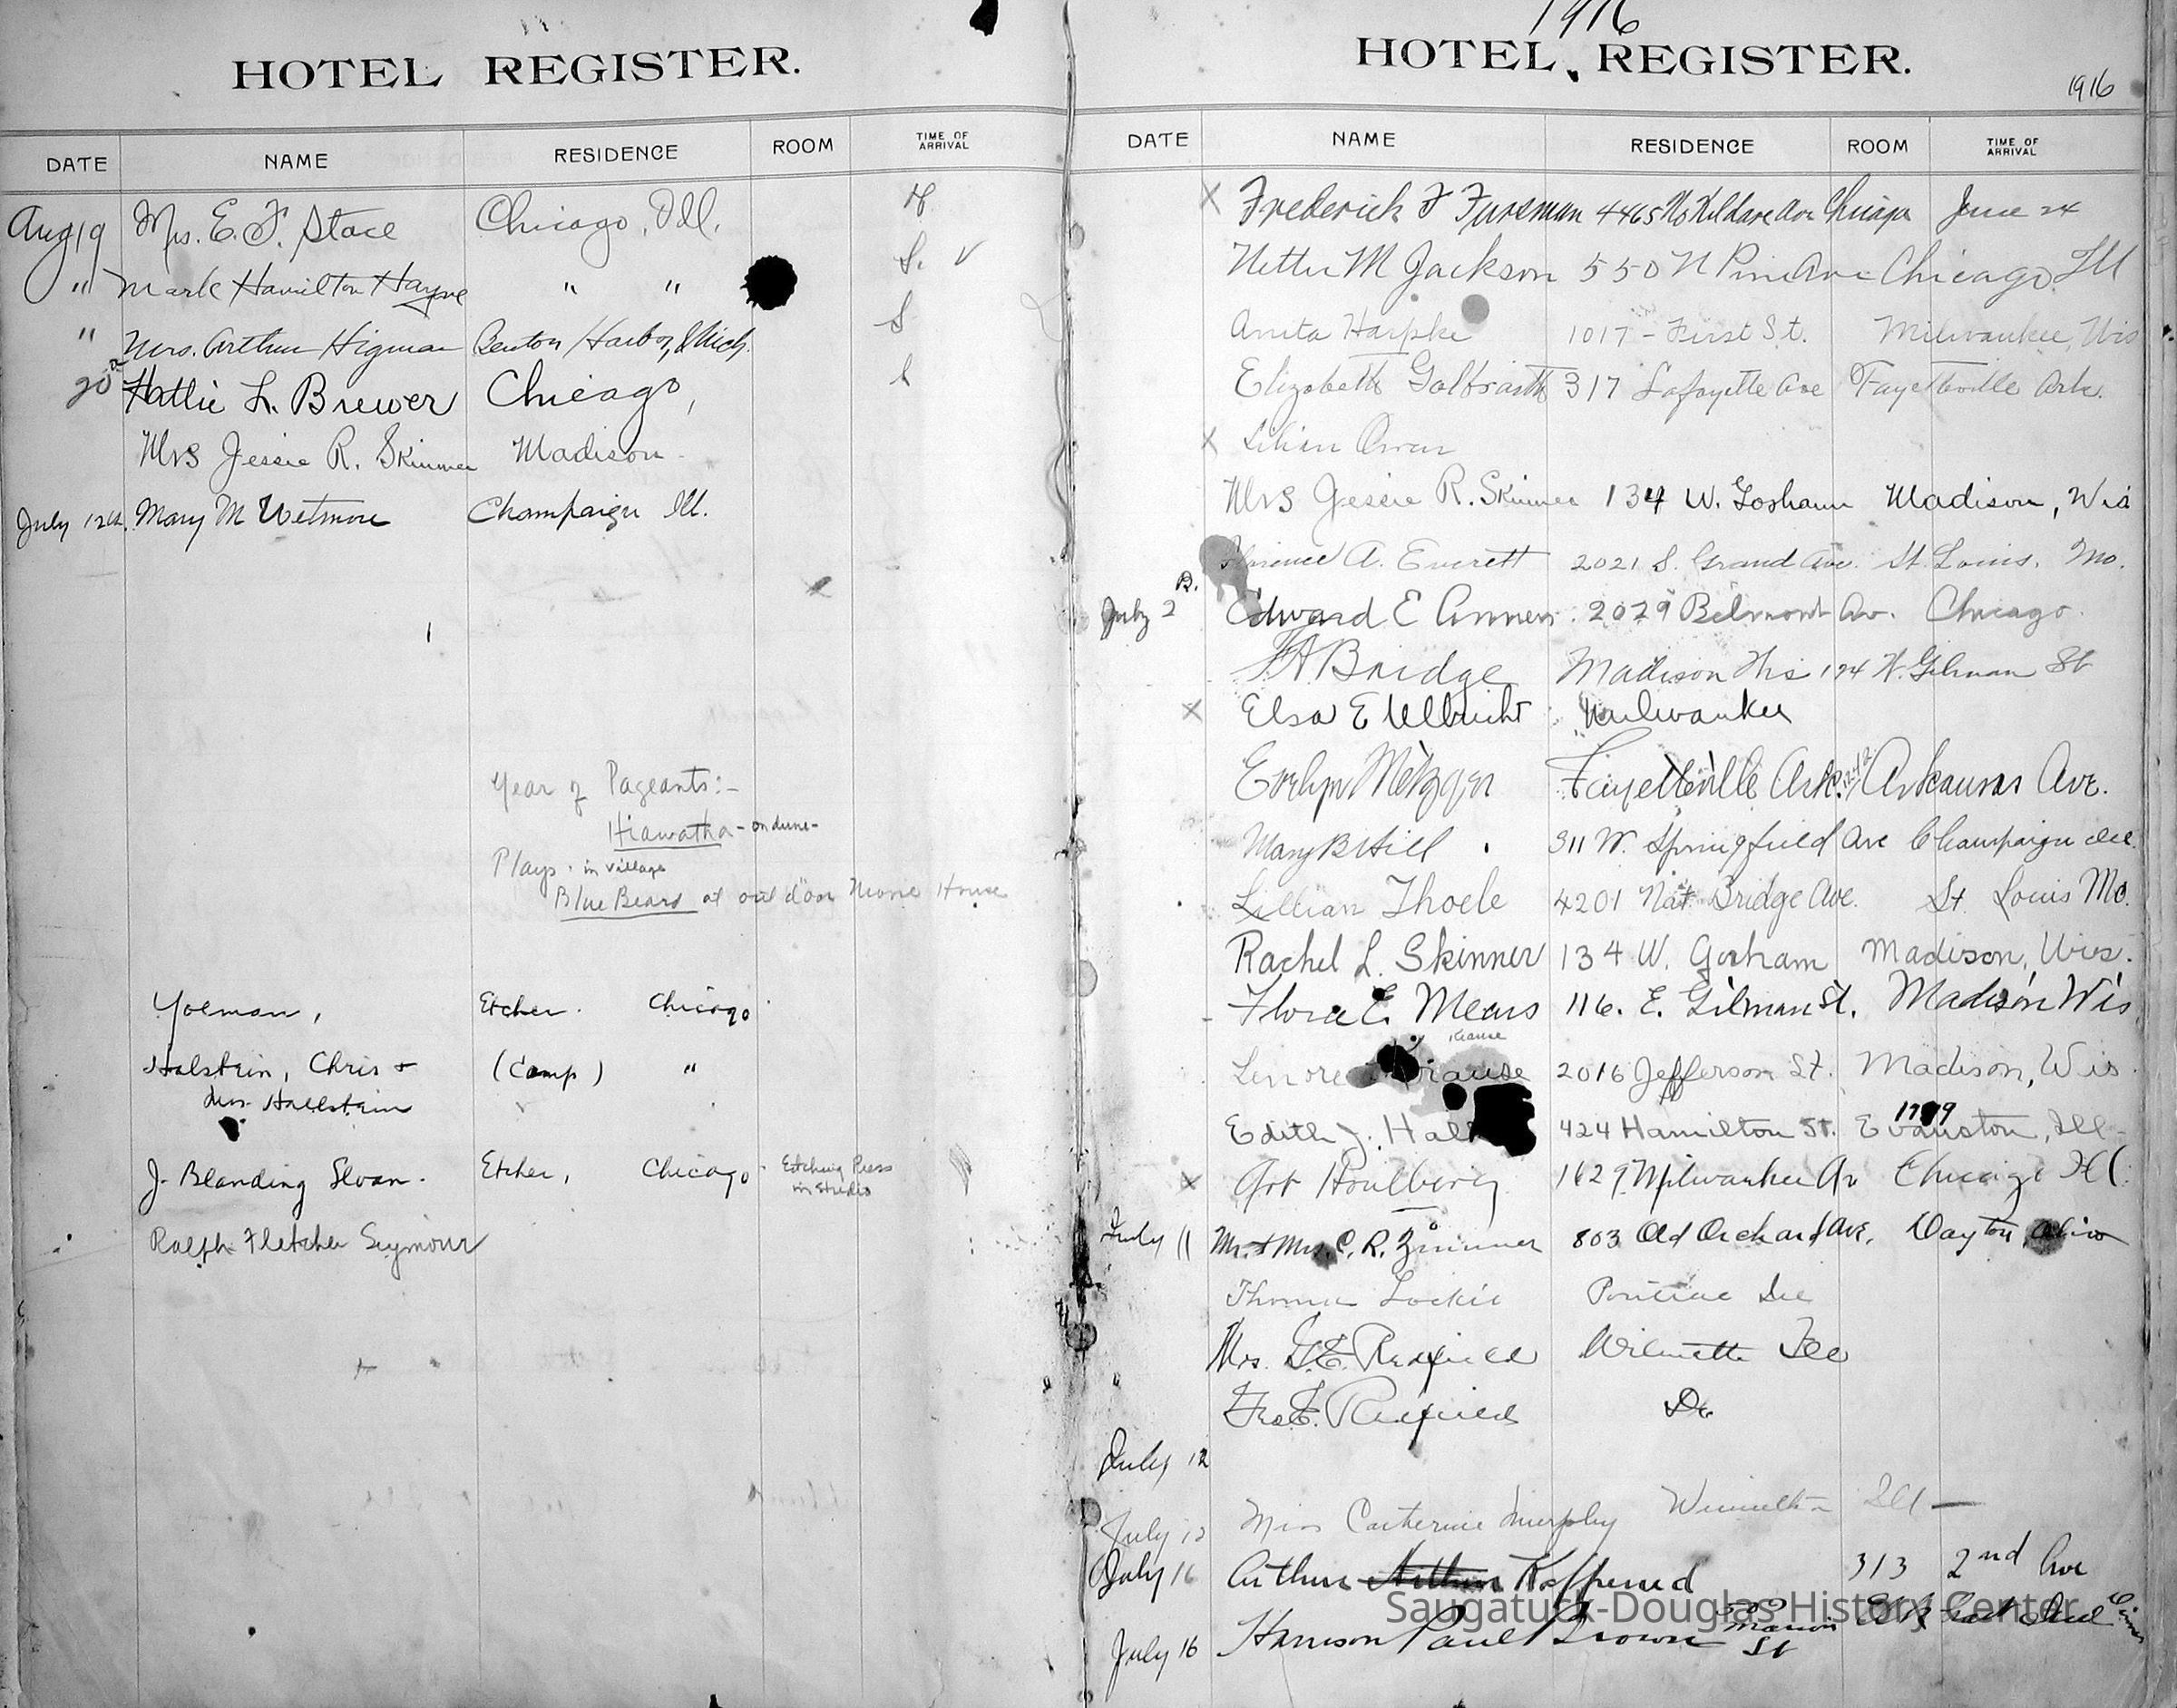 HOTEL REGISTER.
DATE NAME RESIDENCE ROOM TIME OF ARRIVAL
Aug 19 Mrs. E. F. Stace Chicago, Ill.
" Mark Hamilton Hayne " " S. V
" Mrs. Arthur Higman Benton Harbor, Mich. S
20 Hattie L. Brewer Chicago,
Mrs Jessie R. Skinner Madison
July 12th Mary M Wetmore Champaign Ill.
Year of Pageants:-
Hiawatha - on dune -
Plays - in village
Blue Beard at out door Movie House
Yoeman, Etcher. Chicago
Halstein, Chris + (Camp) "
Mrs. Hallstein
J. Blanding Sloan. Etcher, Chicago - Etching Press
in Studio
Ralph Fletcher Seymour
1916
HOTEL REGISTER.
1916
DATE NAME RESIDENCE ROOM TIME OF ARRIVAL
X Frederick F Fursman 4465 No Kildare Ave Chicago June 24
Nettie M Jackson 550 N Pine Ave Chicago Ill
Anita Harpke 1017 - First St. Milwaukee, Wis
Elizabeth Galbraith 317 Lafayette Ave Fayetteville Ark.
X Lilian Owen
Mrs Jessie R. Skinner 134 W. Gorham Madison, Wis
A. Everett 2021 S. Grand Ave. St. Louis, Mo.
July 2 Edward E 2029 Belmont Av. Chicago.
Bridge Madison Wis 124 W. Gilman St
X Elsa E Ulbricht Milwaukee
Evelyn Metzger Fayetteville Ark. Arkansas Ave.
Mary B Hill 311 W. Springfield Ave Champaign Ill.
Lillian Thoele 4201 Nat Bridge Ave. St Louis Mo.
Rachel L. Skinner 134 W. Gorham Madison, Wis.
Flora E. Mears 116. E. Gilman St. Madison Wis
Krause
Lenore Krause 2016 Jefferson St. Madison, Wis.
Edith J. Hall 424 Hamilton St. Evanston, Ill.
X 1629 Milwaukee Av Chicago Ill.
July 11 Mr. & Mrs. C. R. Zimmer 803 Old Orchard Ave. Dayton, Ohio
Thomas Lockie Pontiac Ill
Mrs. G. E. Redfield Wilmette Ill
Redfield Do
July 12
July 12 Miss Catherine Murphy Ill -
July 16 Arthur 313 2nd Ave
July 16 Harrison Paul Brown Marion St
Saugatuck-Douglas History Center